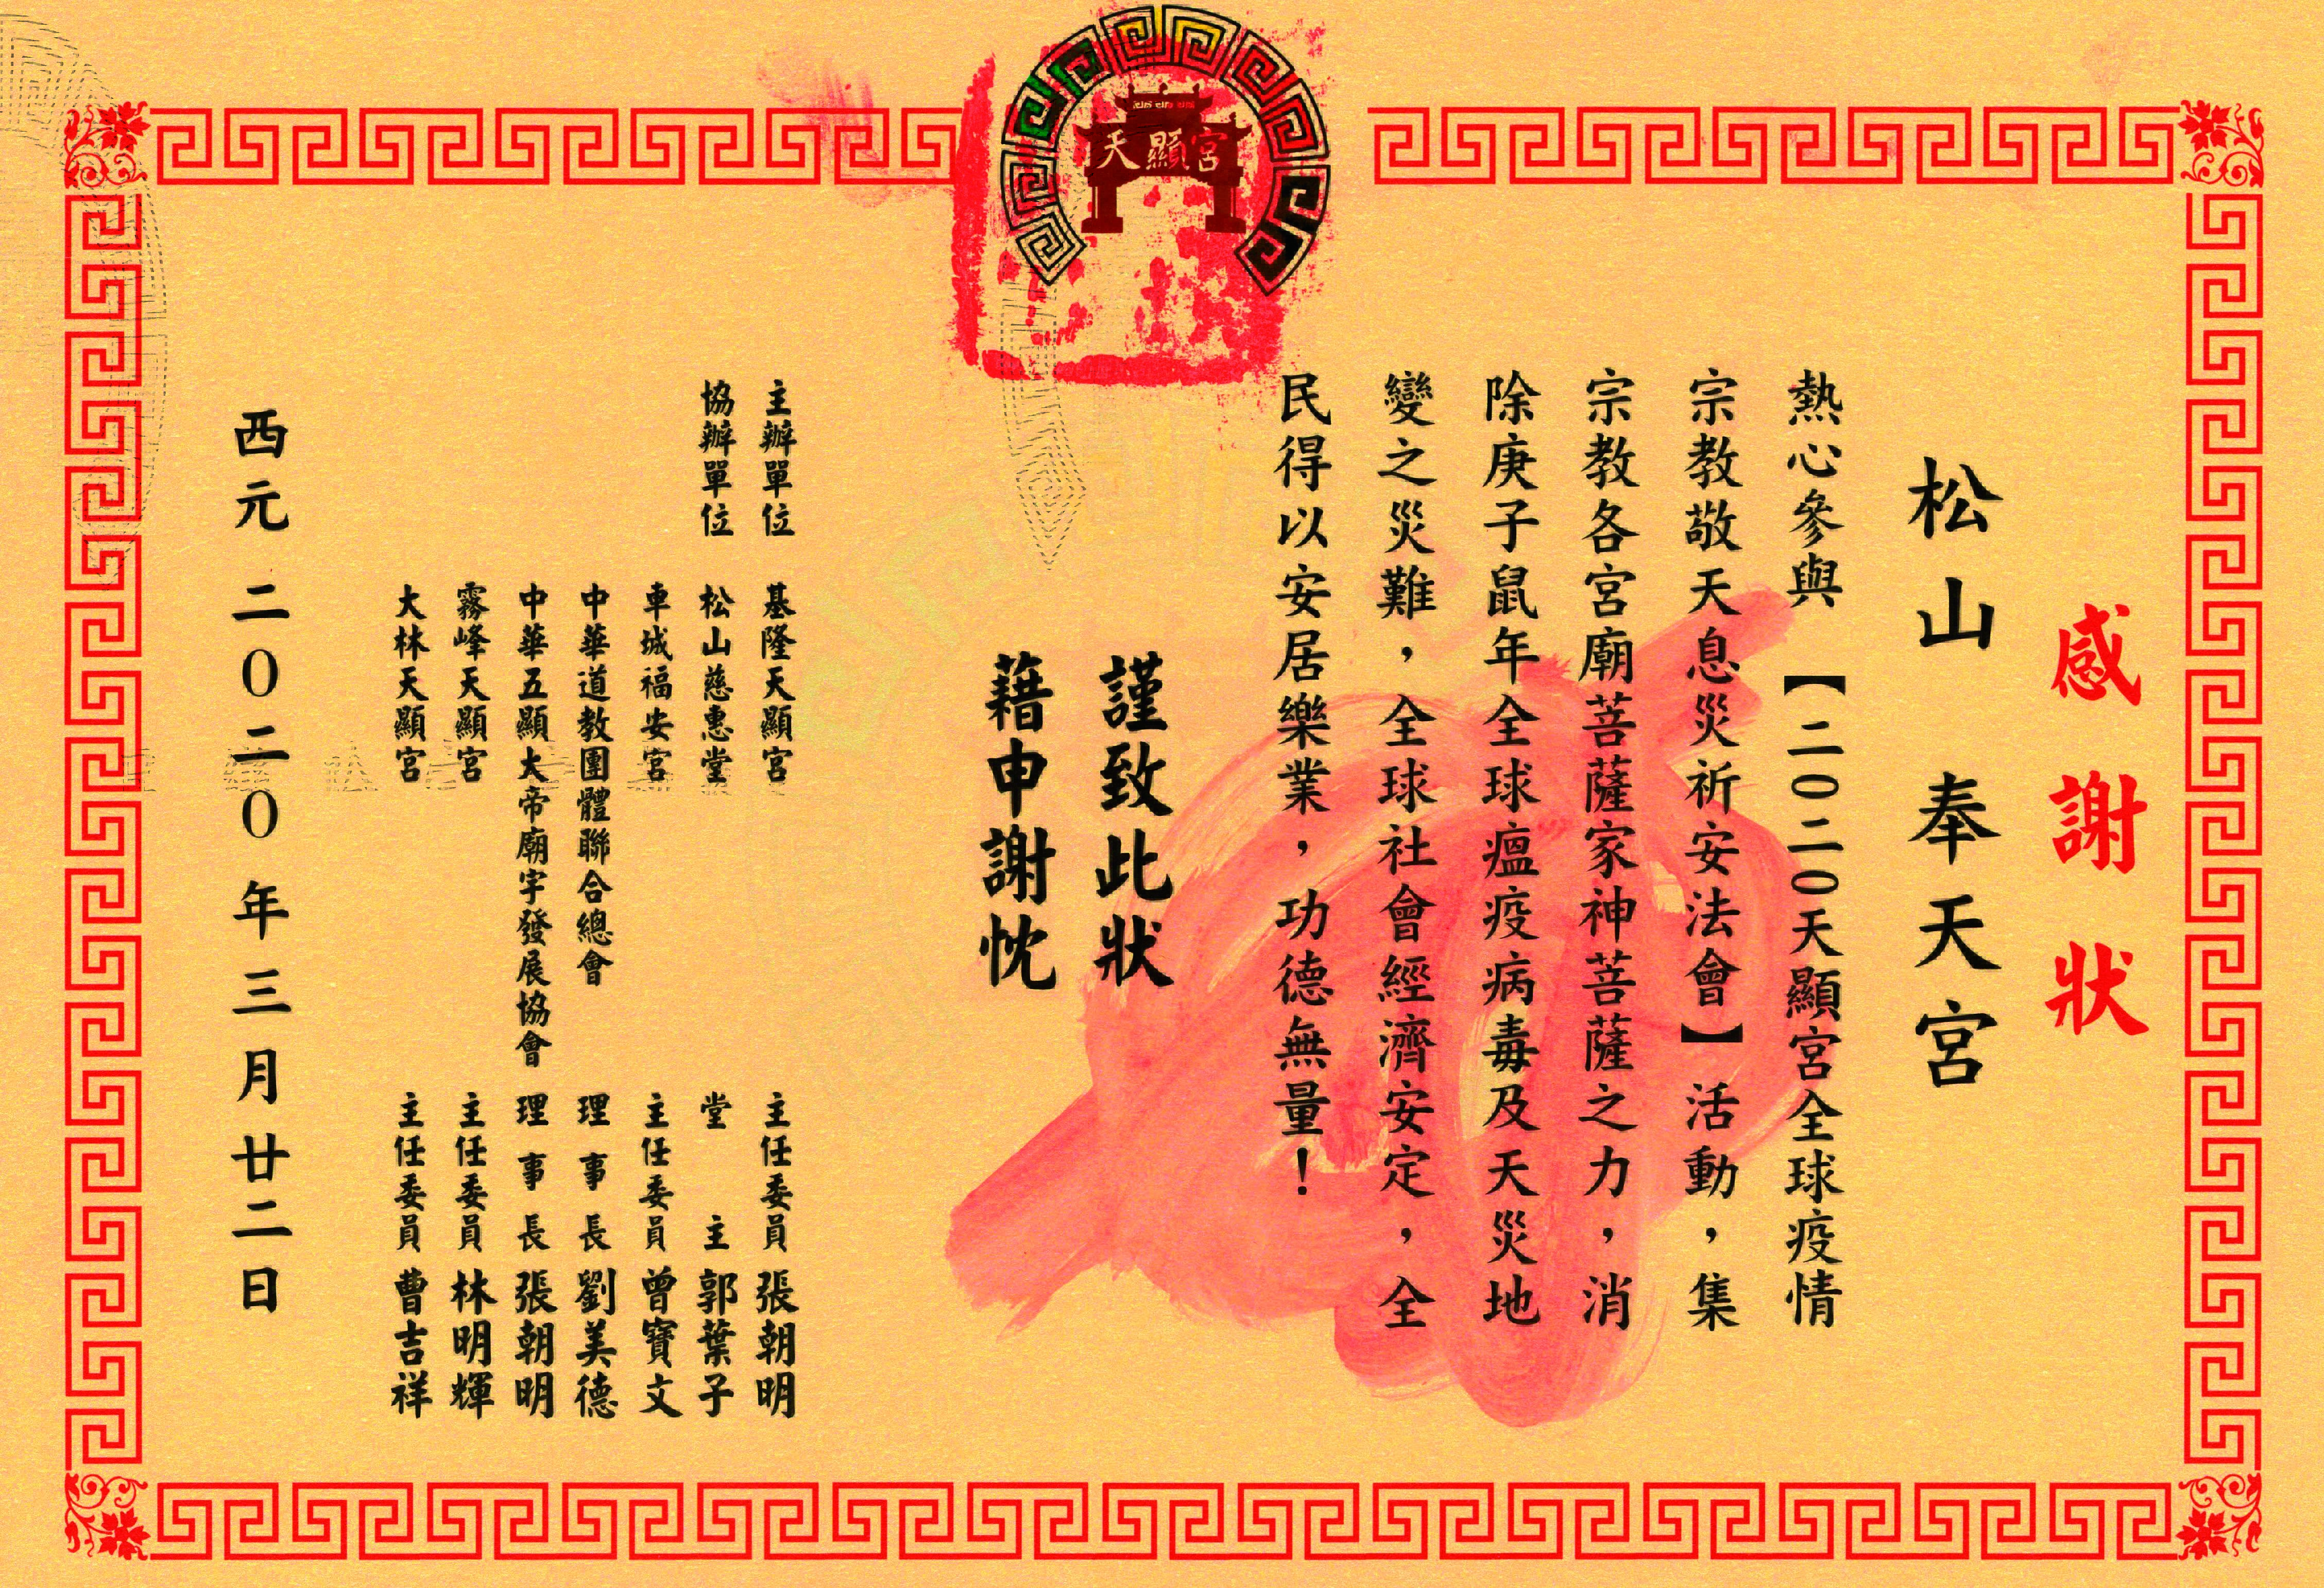 天顯宮
感謝狀
松山 奉天宮
熱心參與 【二〇二〇天顯宮全球疫情
宗教敬天息災祈安法會】活動，集
宗教各宮廟菩薩家神菩薩之力，消
除庚子鼠年全球瘟疫病毒及天災地
變之災難，全球社會經濟安定，全
民得以安居樂業，功德無量！
謹致此狀
藉申謝忱
主辦單位 基隆天顯宮 主任委員 張朝明
協辦單位 松山慈惠堂 堂主 郭葉子
車城福安宮 主任委員 曾寶文
中華道教團體聯合總會 理事長 劉美德
中華五顯大帝廟宇發展協會 理事長 張朝明
霧峰天顯宮 主任委員 林明輝
大林天顯宮 主任委員 曹吉祥
西元 二〇二〇年三月廿二日